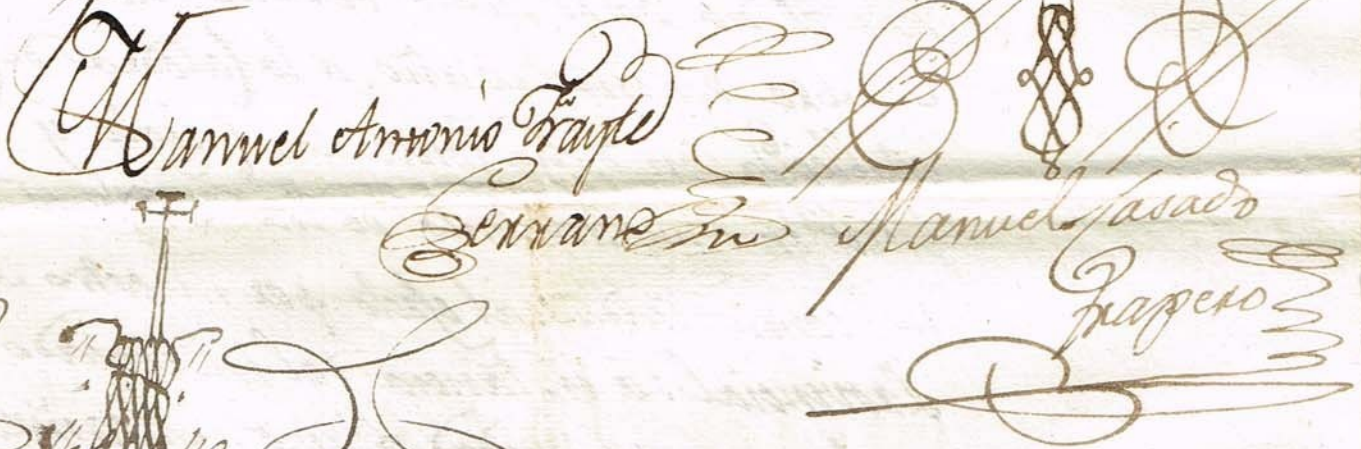 Manuel Antonio Frayle
Serrano
Manuel Casado
Trapero